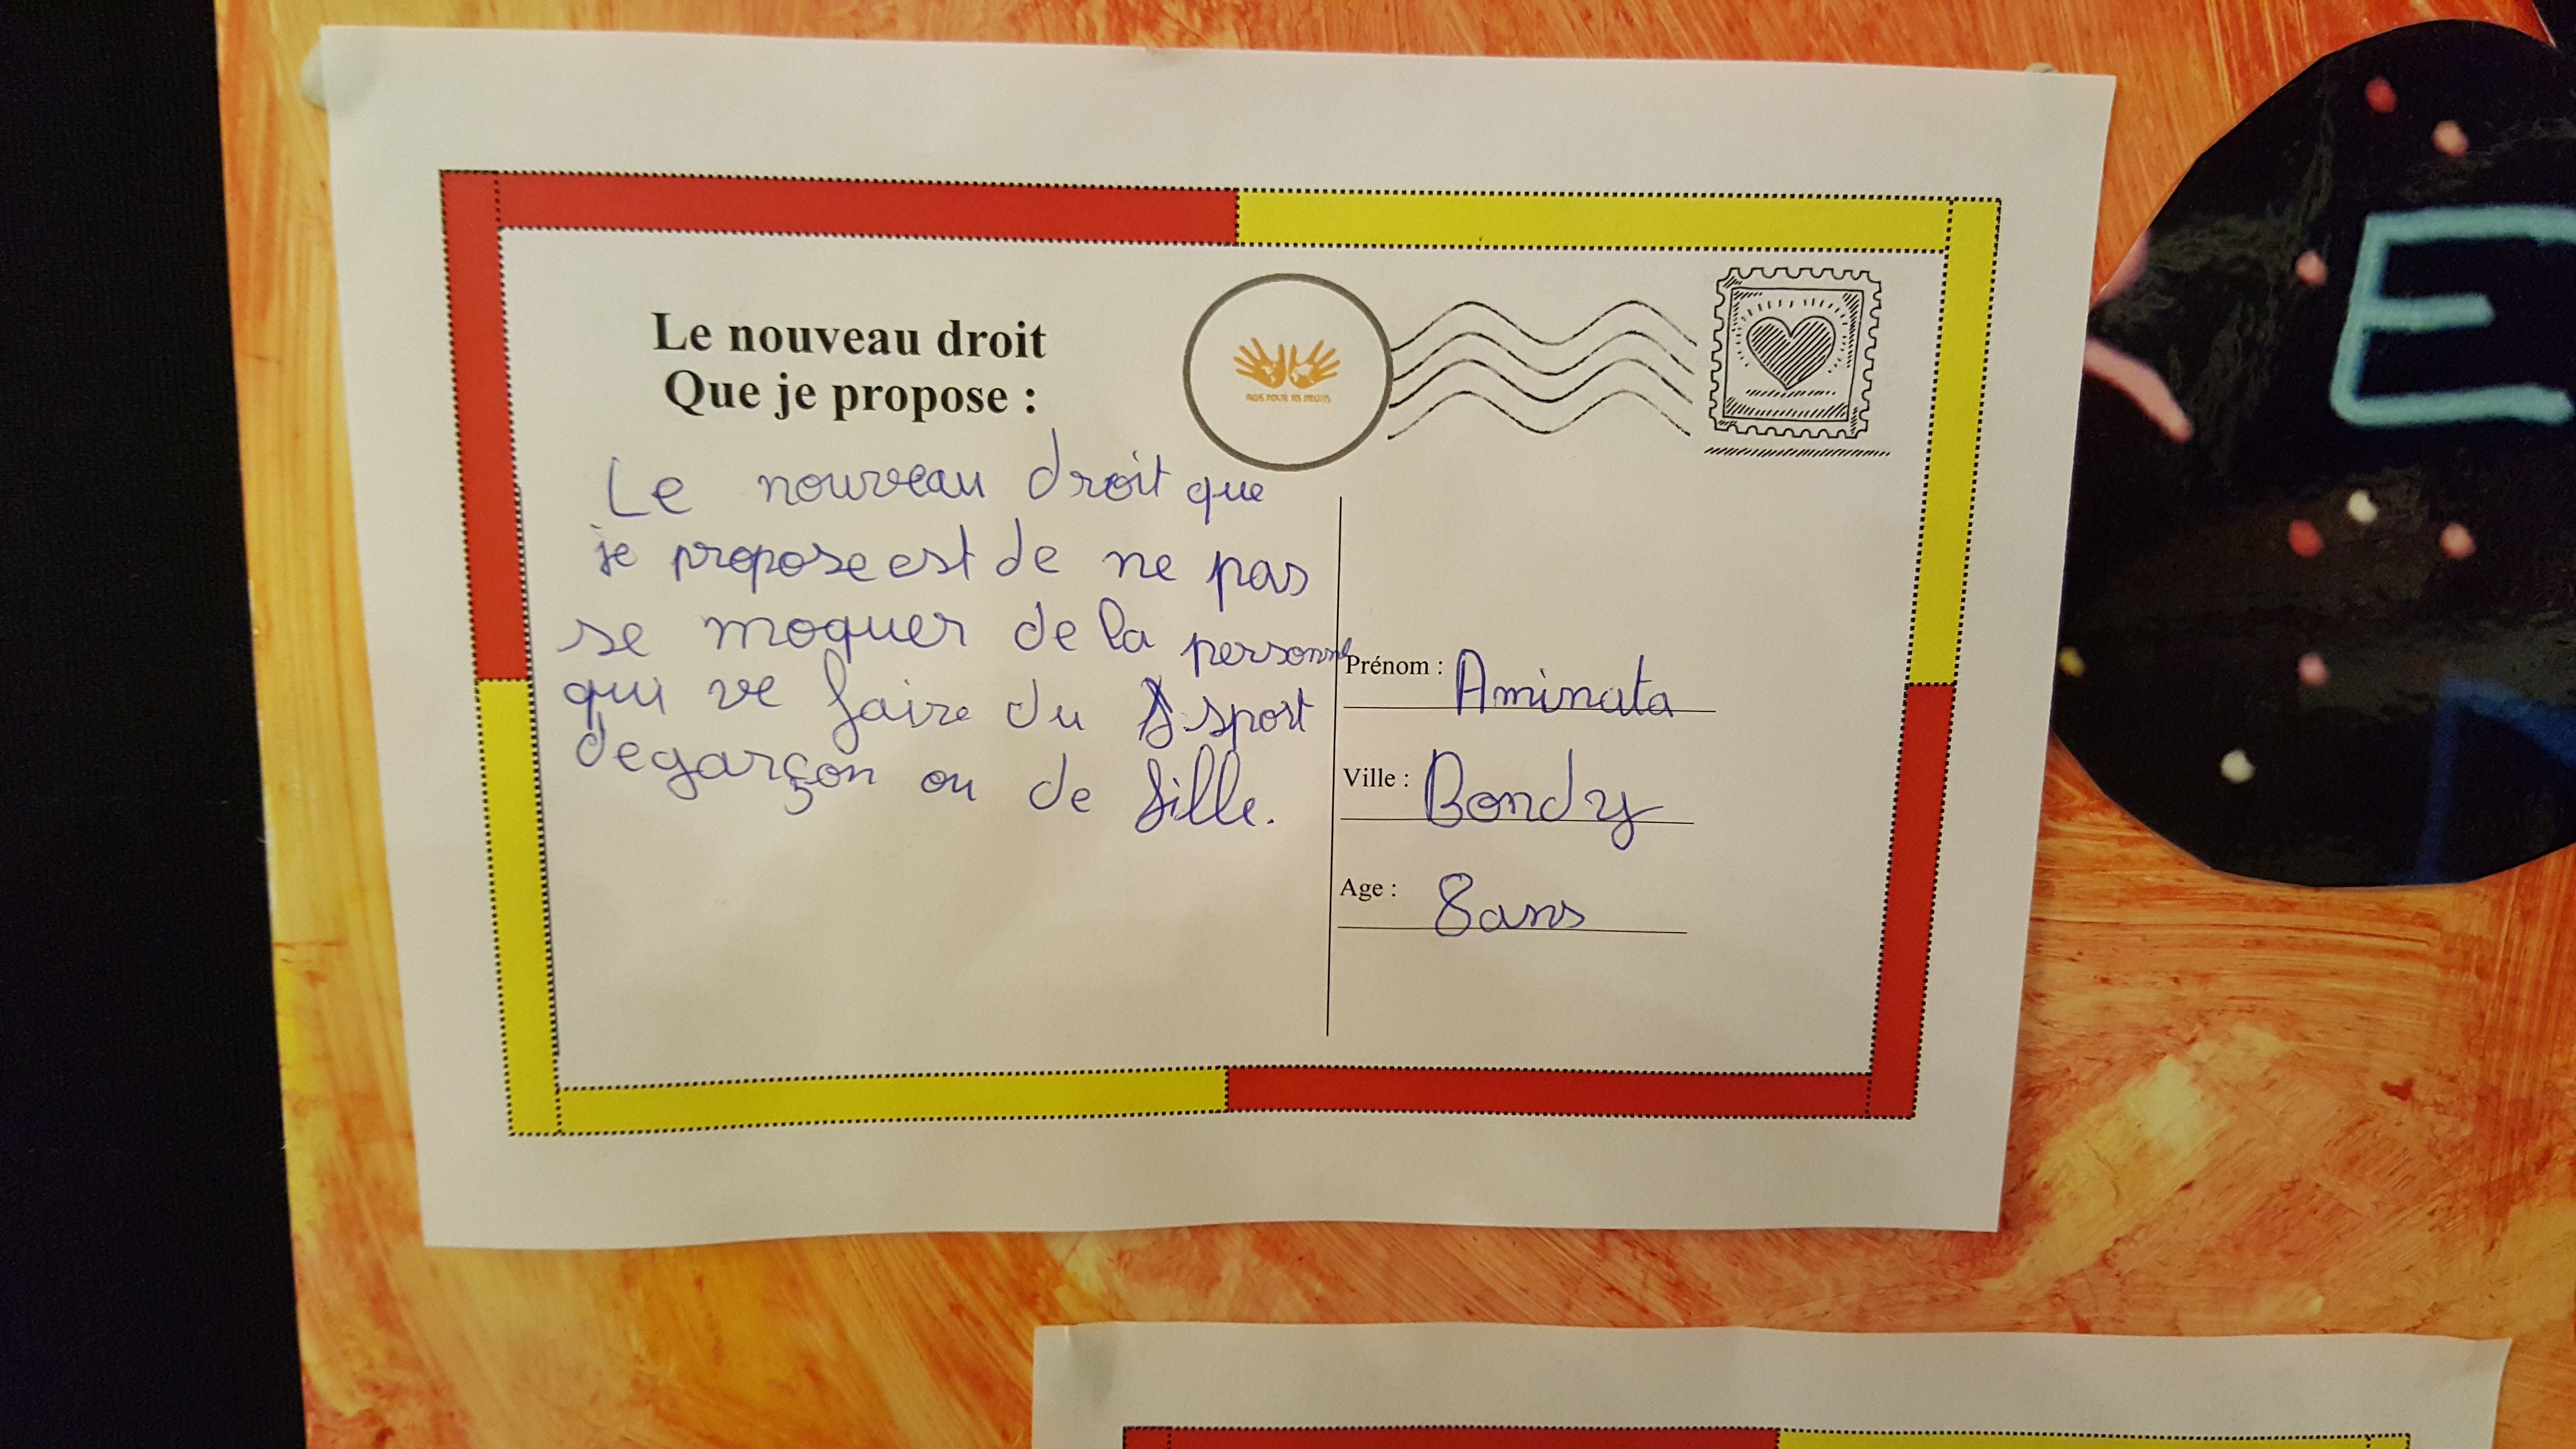 Le nouveau droit
Que je propose :
Le nouveau droit que
je propose est de ne pas
se moquer de la personne
qui ve faire du sport
de garçon ou de fille.
AGIS POUR TES DROITS
Prénom : Aminata
Ville : Bondy
Age : 8 ans
E